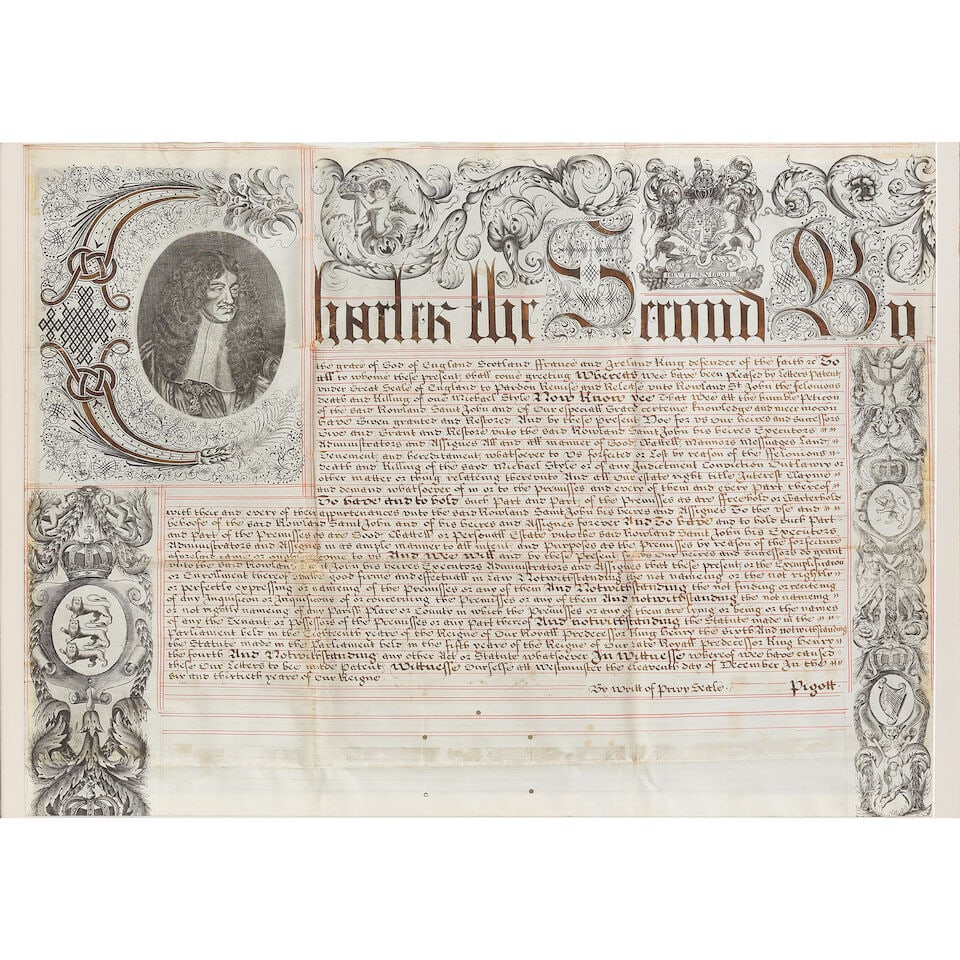 Charles the Second By
DIEV ET MON DROIT
the grace of God of England Scotland ffrance and Ireland King defender of the faith &c To
all to whome these present shall come greeting Whereas wee have been pleased by Letters Patent
under Great Seale of England to Pardon Remise and Release unto Rowland St John the felonious
death and Killing of one Michael Style Now Know yee That Wee att the humble Peticon
of the said Rowland Saint John and of Our especiall Grace certeine knowledge and meer mocon
have Given granted and Restored And by these Present Doe for us Our heires and Successors
Give and Grant and Restore unto the said Rowland Saint John his heires Executors
Administrators and Assignes All and all manner of Good Chattell Mannors Messuages Land
Tenement and hereditament whatsoever to Us forfeited or Lost by reason of the ffelonious
death and Killing of the sayd Michael Style or of any Indictment Conviction Outlawry or
other matter or thing relateing thereunto And all Our estate right title Interest Clayme
and demand whatsoever of in or to the Premisses and every of them and every Part thereof
To have and to hold such Part and Part of the Premisses as are ffreehold or Charterhold
with their and every of their appurtenances unto the said Rowland Saint John his heires and Assignes To the use and
behoofe of the said Rowland Saint John and of his heires and Assignes forever And To have and to hold such Part
and Part of the Premisses as are Good Chattell or Personall Estate unto the said Rowland Saint John his Executors
Administrators and Assignes in as ample manner to all intent and Purposes as the Premisses by reason of the forfeiture
aforesaid came or ought to come to us And Wee Will and by these Present for us Our heires and Successors do grant
unto the said Rowland St John his heires Executors Administrators and Assignes that these present or the Exemplificacon
or Enrollment thereof shalbe good firme and effectuall in Law Notwithstanding the not nameing or the not rightly
or perfectly expressing or nameing of the Premisses or any of them And Notwithstanding the not finding or reciteing
of any Inquisicon or Inquisicons of or concerning the Premisses or any of them And notwithstanding the not nameing
or not rightly nameing of any Parish Place or County in which the Premisses or any of them are lying or being or the names
of any the Tenant or Possessors of the Premisses or any Part thereof And notwithstanding the Statute made in the
Parliament held in the Eighteenth yeare of the Reigne of Our Royall Predecessor King henry the sixth And notwithstanding
the Statute made in the Parliament held in the fifth yeare of the Reigne of Our late Royall Predecessor King henry
the fourth And Notwithstanding any other Act or Statute whatsoever In Witnesse whereof wee have caused
these Our Letters to bee made Patent Witnesse Ourselfe att Westminster the eleaventh day of December In the
six and thirtieth yeare of Our Reigne
By Writt of Privy Seale
Pigott